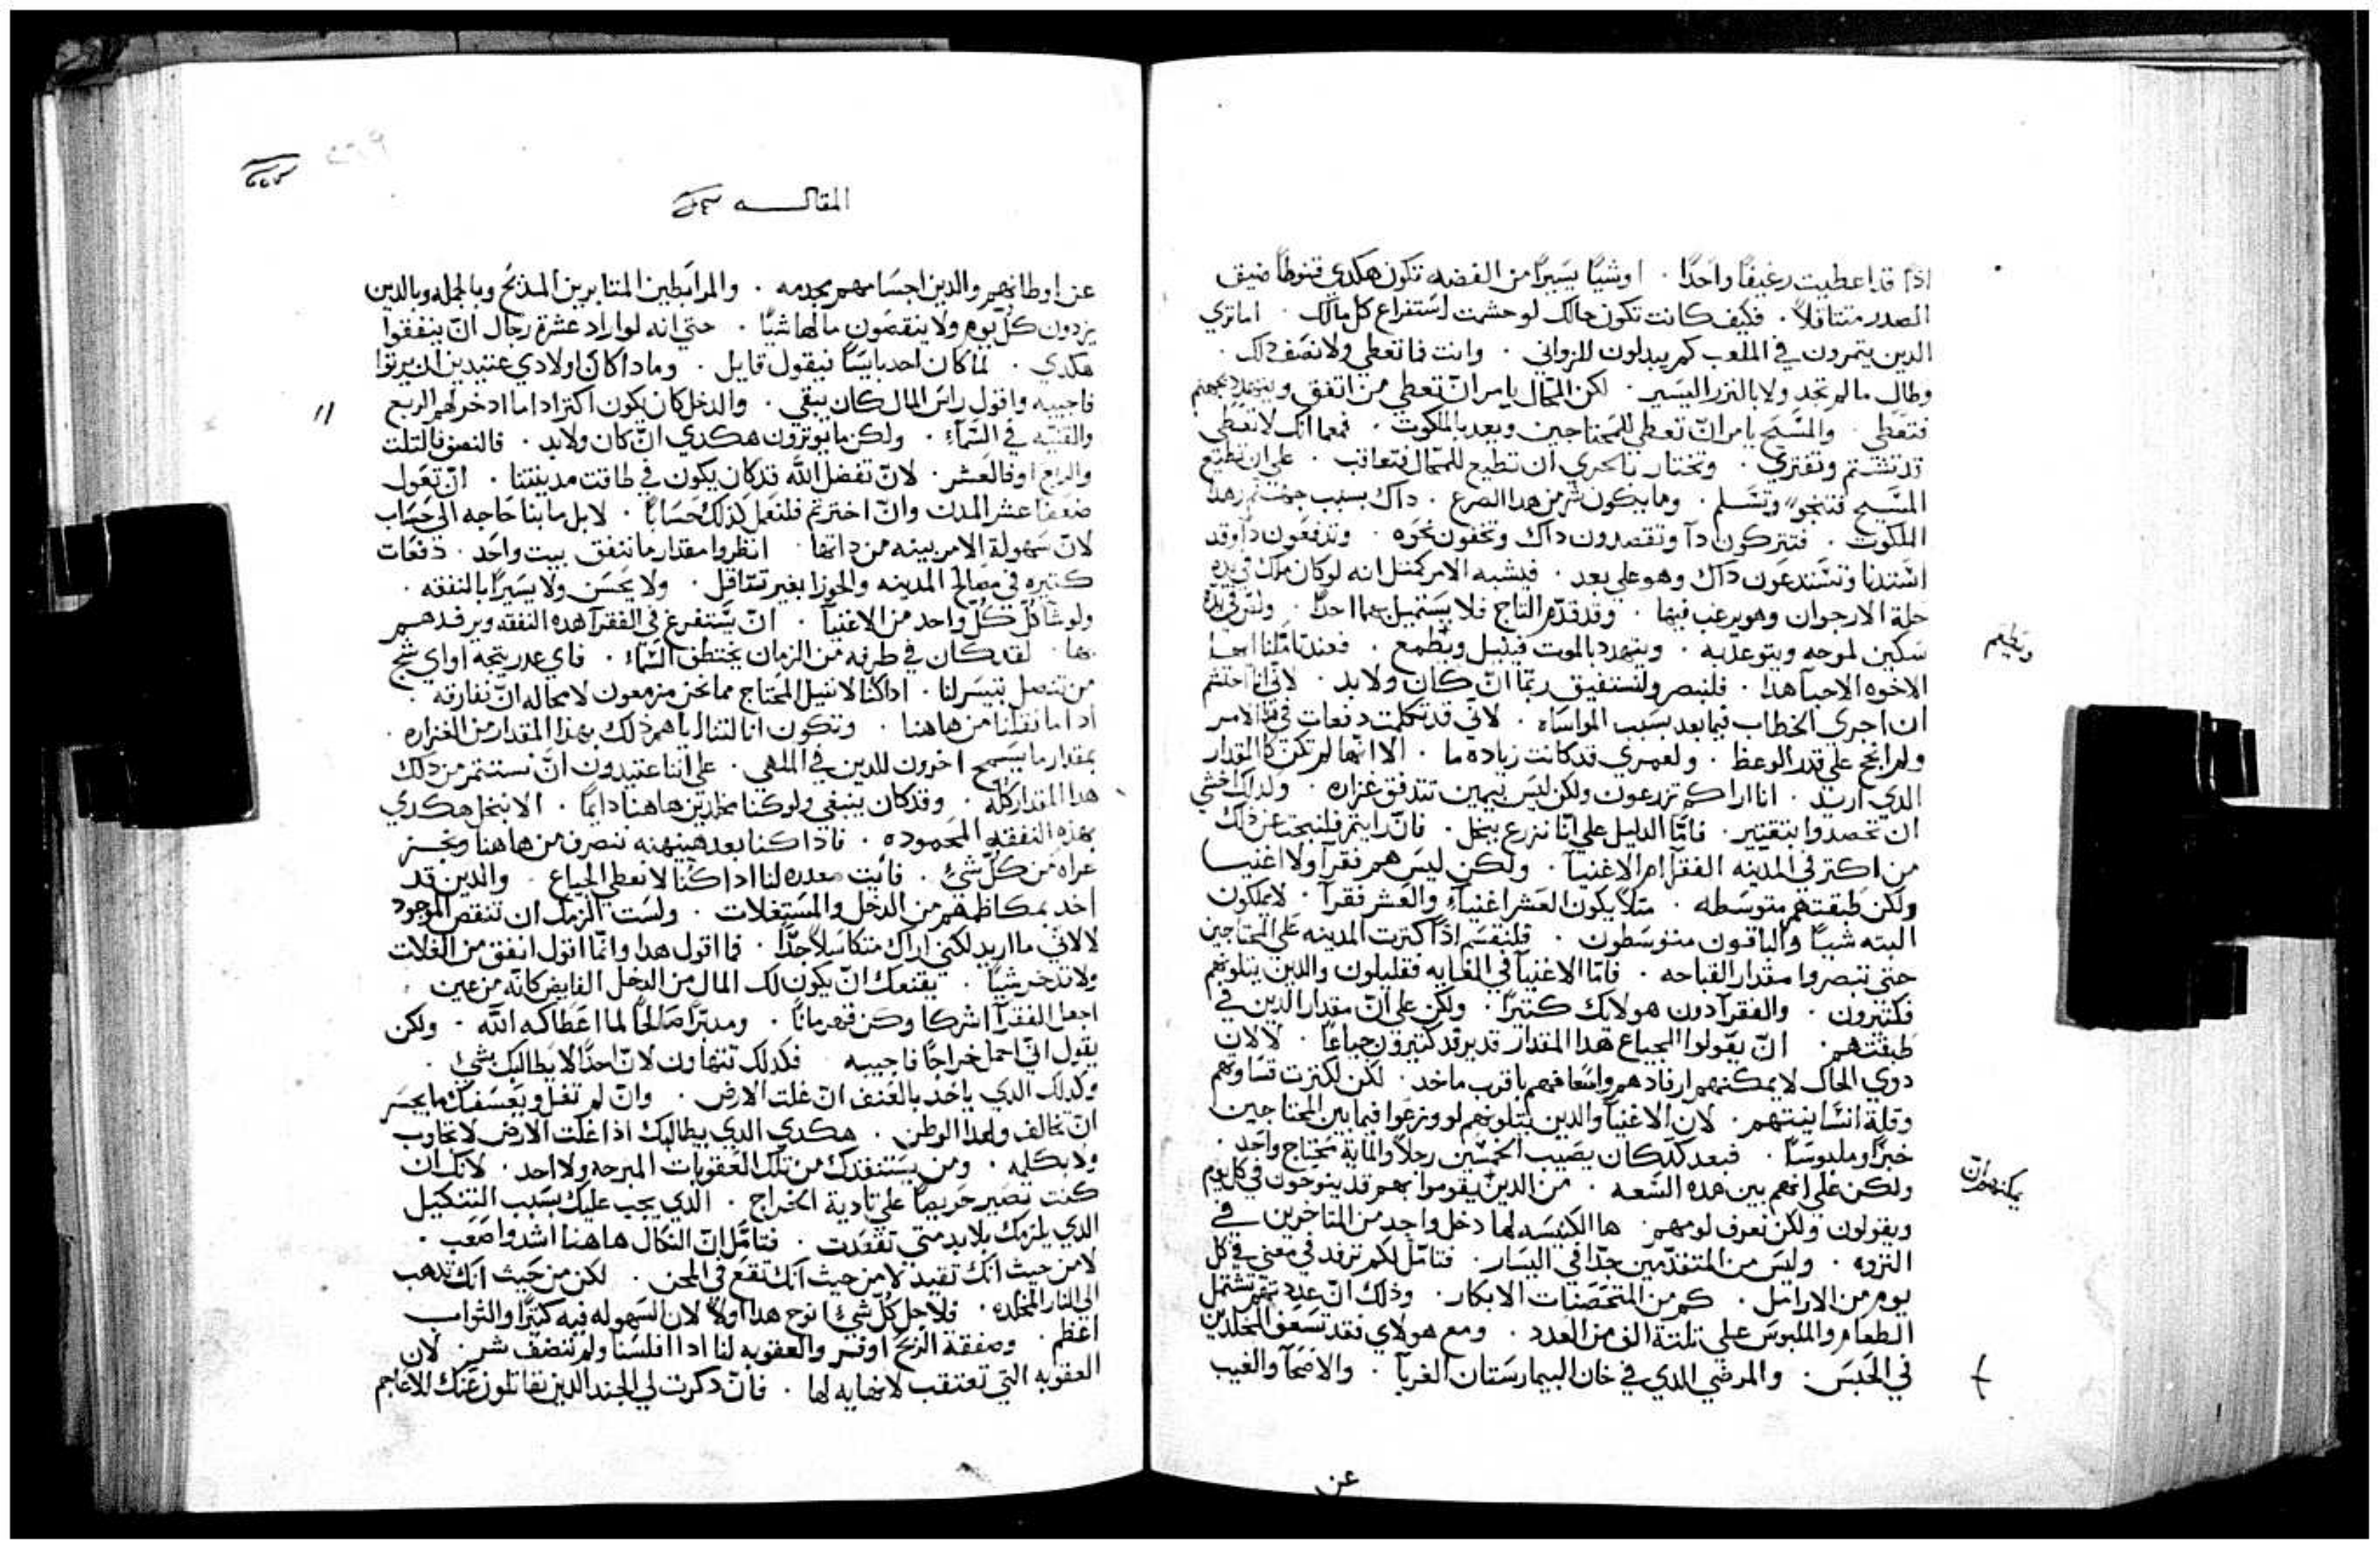 اذا قد اعطيت رغيفًا واحدًا . اوشيًا يسيرًا من الفضه تكون هكدي قنوطًا ضيق
الصدر متتاقلاً . فكيف كانت تكون حالك لو حشمت استفراع كل مالك . اما تري
الدين يتمرون في الملعب كم يبدلون للزواني . وانت فما تعطي ولا نصف دلك .
وطال ما لم تجد ولا بالنزر اليسير . لكن المحال يامر ان تعطي من اتفق
فتعطي . والمسيح يامر ان تعطي للمحتاجين ويعد بالملكوت . فمعما انك لا تعطي
قد تشتم وتفتري . وتختار بالحري ان تطيع للمحال فتعاقب . علي ان تطيع
المسيح فتنجو وتسلم . وما يكون شر من هدا الصرع . داك بسبب جهنم وهدا
الملكوت . فتتركون دآ وتقصدون داك وتخفون نحوه . وتدفعون دا وقد
استدنا وتستدعون داك وهو علي بعد . فيشبه الامر كمتل انه لو كان ملك في يده
حلة الارجوان وهو يرغب فيها . وقد قدم التاج فلا يستميل بهما احدًا .
سكين لموحه ويتوعد به . ويتهدد بالموت فيتبل وتطمع .
ويطيم
الاخوه الاحبآ هدا . فلنبصر ولنستفيق ربما ان كان ولا بد . لاني انا احتشم
ان اجري الخطاب فيما بعد بسبب المواساه . لاني قد تكلمت دفعات في هدا الامر
ولم انجح علي قدر الوعظ . ولعمري قد كانت زياده ما . الا انها لم تكن كالمقدار
الدي اريد . انا اراكم تزرعون ولكن ليس بيمين تتدفق غزاره . ولداك اخشي
ان تحصدوا بتقتير . فاما الدليل علي انا نزرع ببخل . فان رايتم فلنبحت عن دلك
من اكتر في المدينه الفقرآ ام الاغنيآ . ولكن ليس هم فقرآ ولا اغنيا
ولكن طبقتهم متوسطه . متلاً يكون العشر اغنيآء والعشر فقرآ . لا يملكون
البته شيًا والباقون متوسطون . فلنقسم اذًا كترت المدينه علي المحتاجين
حتي تبصروا مقدار القباحه . فاما الاغنيآ في الغايه فقليلون والدين يتلونهم
فكتيرون . والفقرآ دون هولايك كتيرًا . ولكن علي ان مقدار الدين في
طبقتهم . ان يقولوا الجياع هدا المقدار قد يرقد كتيرون جياعًا . لا لان
دوي الحال لا يمكنهم ارفادهم واسعافهم باقرب ماخد . لكن لكترت قساوتهم
وقلة انسانيتهم . لان الاغنيآ والدين يتلونهم لو وزعوا فيما بين المحتاجين
خبزًا وملبوسًا . فبعد كد كان يصيب الخمسين رجلاً والماية محتاج واحد .
ولكن علي انهم بين هده السعه . من الدين يقوموا بهم قد ينوحون في كل يوم
يمكنهم ان
ويقولون ولكن نعرف لومهم . ها الكنيسه لها دخل واحد من المتاخرين في
التروه . وليس من المتقدمين جدًا في اليسار . فتامل لكم ترفد في معني في كل
يوم من الارامل . كم من المتحصنات الابكار . وذلك ان عددهم تشتمل
الطعام والملبوس علي تلتة الف من العدد . ومع هولاي فقد تسعف المخلدين
في الحبس . والمرضي الدي في خان البيمارستان الغربآ . والاضحآ والغيب
عن
المقالــــه
عن اوطانهم والدين اجسامهم مجدمه . والمرابطين المتابرين المذبح وبالجمله وبالدين
يردون كل يوم ولا ينقصون مالها شيًا . حتي انه لو اراد عشرة رجال ان ينفقوا
هكدي . لما كان احد بايسًا فيقول قايل . ومادا كان اولادي عتيدين ان يرتوا
فاجيبه واقول راس المال كان يبقي . والدخل كان يكون اكتر ادا ما ادخر لهم الربع
والقنيه في السمآء . ولكن ما يوترون هكدي ان كان ولا بد . فالنصف فالتلت
والربع اوفالعشر . لان تفضل الله قد كان يكون في طاقت مدينتنا . ان تعول
ضعفا عشر المدن وان اخترتم فلنعمل كذلك حسابًا . لا بل ما بنا حاجه الي حساب
لان سهولة الامر بينه من داتها . انظروا مقدار ما تنفق بيت واحد . دفعات
كتيره في مصالح المدينه والحوزا بغير تتاقل . ولا يحسن ولا يسيرًا بالنفقه .
ولو شآ كل كل واحد من الاغنيآ . ان يستفرغ في الفقرآ هده النفقه ويرفدهم
بها . لقد كان في طرفه من الزمان يختطف السمآء . فاي عدر يتجه او اي شج
من تنصل تيسر لنا . اداكنا لا ننيل المحتاج مما نحن مزمعون لا محاله ان نفارقه .
ادا ما نقلنا من هاهنا . وتكون انالتنا اياهم ذلك بهذا المقدار من الغزاره .
بمقدار ما يسمح اخرون للدين في الملهي . علي اننا عتيدون ان نستتمر من دلك
هدا المقدار كله . وقد كان ينبغي ولو كنا مخلدين هاهنا دايمًا . الا نبخل هكدي
بهذه النفقه المحموده . فاذا كنا بعد هنيهنه ننصرف من هاهنا ونحن
عراه من كل شيٍ . فايت معدره لنا ادا كنا لا نعطي الجياع . والدين قد
اخد بمكاظمهم من الدخل والمستغلات . ولست الزمك ان تنقص الموجود
لا لاني ما اريد لكني اراك متكاسلاً جدًا . فما اقول هدا وانما اقول انفق من الغلات
ولا تدخر شيًا . يقنعك ان يكون لك المال من الدخل الفايض كانه من عين .
اجعل الفقرآ اشركا وكن قهرمانًا . ومدبرًا صالحًا لما اعطاكه الله . ولكن
يقول اني احمل خراجًا فاجيبه فكدلك تتهاون لان احدًا لا يطالبك بشيٍ .
وكدلك الدي ياخد بالعنف ان غلت الارض . وان لم تغل ويعسفك ما يجسر
ان تخالف ولهدا الوطن . هكدي الدي يطالبك اذا غلت الارض لا تجاوب
ولا بكلمه . ومن يستنفدك من تلك العقوبات المبرحه ولا احد . لانك ان
كنت تصير حريصًا علي تادية الخراج . الدي يجب عليك بسبب التنكيل
الدي يلزمك بلابد متي تقعدت . فتامل ان النكال هاهنا اشد واصعب .
لا من حيث انك تقيد لا من حيث انك تقع في المحن . لكن من حيث انك تدهب
الي النار المخلده . فلاجل كل شيٍ نوح هدا اولاً لان السهوله فيه كتيرًا والثواب
اعظم . وصفقة الربح اوفر والعقوبه لنا اداافلسنا ولم نتضف شر . لان
العقوبه التي تعتقب لا نهايه لها . فان دكرت لي الجند الدين يقاتلون عنك للاعاجم